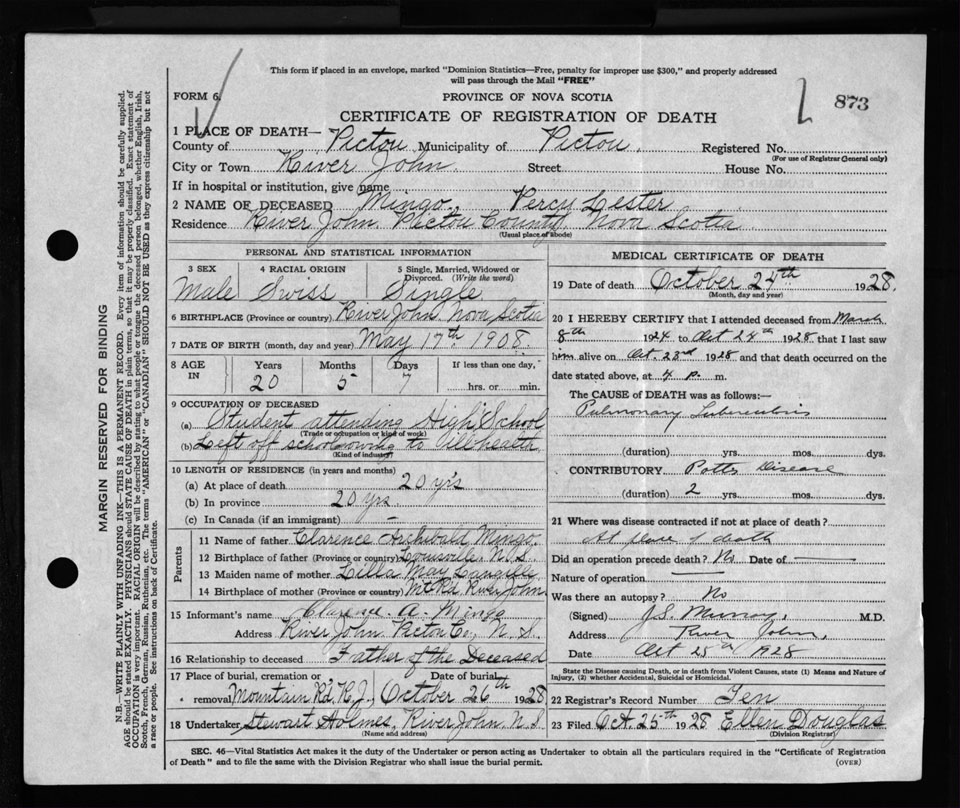 This form if placed in an envelope, marked "Dominion Statistics—Free, penalty for improper use $300," and properly addressed
will pass through the Mail "FREE"
FORM 6.
PROVINCE OF NOVA SCOTIA
873
CERTIFICATE OF REGISTRATION OF DEATH
1 PLACE OF DEATH—
County of Pictou Municipality of Pictou. Registered No.
(For use of Registrar General only)
City or Town River John. Street House No.
If in hospital or institution, give name
2 NAME OF DECEASED Mingo. Percy Lester
Residence River John Pictou County, Nova Scotia
(Usual place of abode)
PERSONAL AND STATISTICAL INFORMATION
3 SEX 4 RACIAL ORIGIN 5 Single, Married, Widowed or
Divorced. (Write the word)
Male Swiss Single
6 BIRTHPLACE (Province or country) River John Nova Scotia
7 DATE OF BIRTH (month, day and year) May 17th 1908.
8 AGE IN Years Months Days If less than one day,
20 5 7 hrs. or min.
9 OCCUPATION OF DECEASED
(a) Student attending High School
(Trade or occupation or kind of work)
(b) Left off school owing to ill health
(Kind of industry)
10 LENGTH OF RESIDENCE (in years and months)
(a) At place of death 20 yrs
(b) In province 20 yrs
(c) In Canada (if an immigrant) –
Parents
11 Name of father Clarence Archibald Mingo.
12 Birthplace of father (Province or country) N.S.
13 Maiden name of mother Lilla May
14 Birthplace of mother (Province or country) Mt Rd River John
15 Informant's name Clarence. A. Mingo
Address River John Pictou Co, N. S.
16 Relationship to deceased Father of the Deceased
17 Place of burial, cremation or Date of burial
removal Mountain Rd R.J. October 26th 1928
18 Undertaker Stewart Holmes, River John, N.S.
(Name and address)
MEDICAL CERTIFICATE OF DEATH
19 Date of death October 24th 1928.
(Month, day and year)
20 I HEREBY CERTIFY that I attended deceased from March
8th 1924 to Oct 24th 1928 that I last saw
him alive on Oct 23rd 1928 and that death occurred on
date stated above, at 4 p. m.
The CAUSE of DEATH was as follows:—
Pulmonary Tuberculosis
(duration) yrs. mos. dys.
CONTRIBUTORY Potts Disease
(duration) 2 yrs. mos. dys.
21 Where was disease contracted if not at place of death?
At place of death
Did an operation precede death? No Date of
Nature of operation
Was there an autopsy? No
(Signed) J.S. Murray, M.D.
Address River John,
Date Oct 25th 1928
State the Disease causing Death, or in death from Violent Causes, state (1) Means and Nature
of Injury, (2) whether Accidental, Suicidal or Homicidal.
22 Registrar's Record Number Ten
23 Filed Oct. 25th 1928 Ellen Douglas
(Division Registrar)
SEC. 46—Vital Statistics Act makes it the duty of the Undertaker or person acting as Undertaker to obtain all the particulars required in the "Certificate of Registration
of Death" and to file the same with the Division Registrar who shall issue the burial permit.
(OVER)
MARGIN RESERVED FOR BINDING
N.B.—WRITE PLAINLY, WITH UNFADING INK—THIS IS A PERMANENT RECORD. Every item of information should be carefully supplied.
AGE should be stated EXACTLY. PHYSICIANS should STATE CAUSE OF DEATH in plain terms, so that it may be properly classified. Exact statement of
OCCUPATION is very important. RACIAL ORIGIN will be described by stating to what people or tongue the deceased person belonged, whether English, Irish,
Scotch, French, German, Russian, Ruthenian, etc. The terms "AMERICAN" or "CANADIAN" SHOULD NOT BE USED as they express citizenship but not
a race or people. See instructions on back of Certificate.